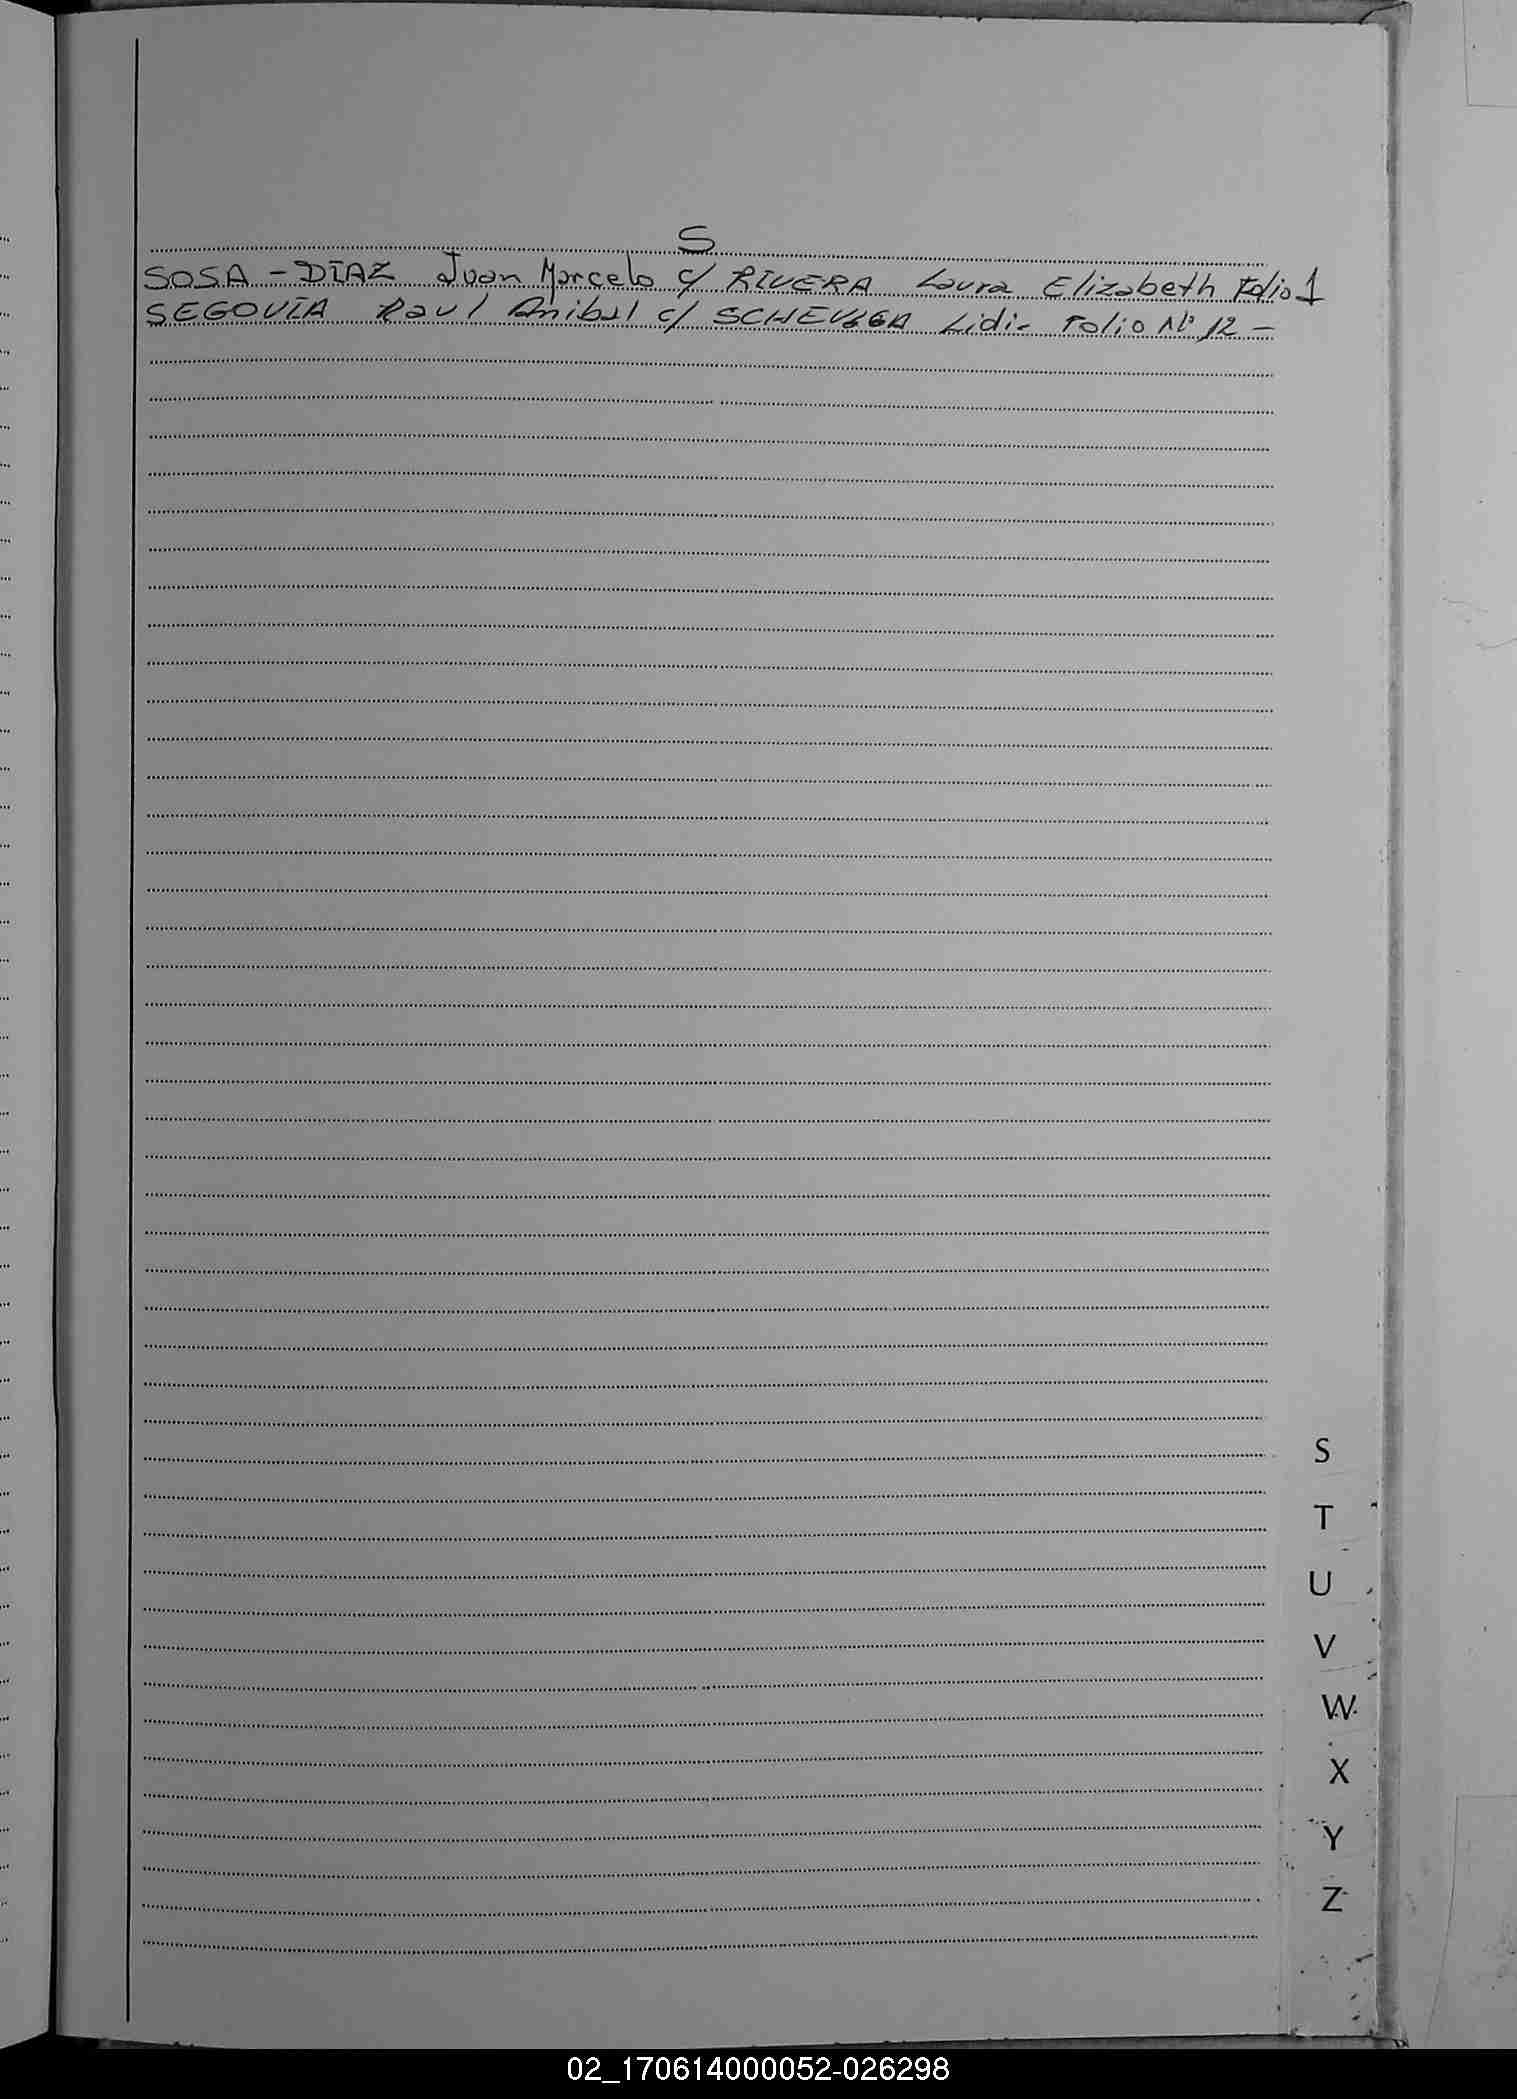 S
SOSA - DIAZ Juan Marcelo c/ RIVERA Laura Elizabeth Folio 1
SEGOVIA Raul Anibal c/ Lidia Folio Nº 12 -
S
T
U
V
W
X
Y
Z
02_170614000052-026298